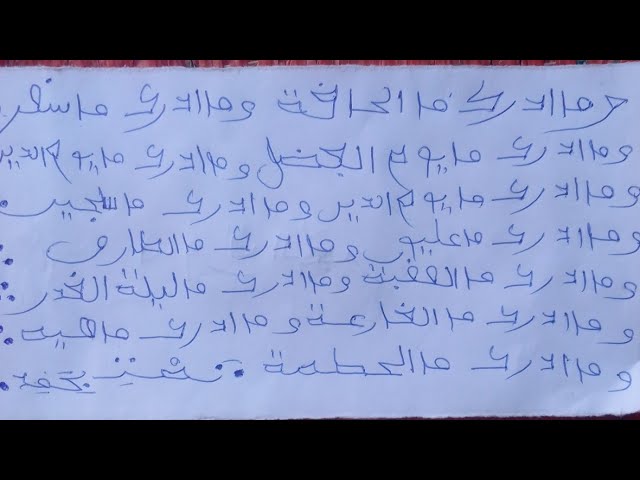 وما ادرك ما الحاقة وما ادرك ما سقر
وما ادرك ما يوم الفصل وما ادرك ما يوم الدين
وما ادرك ما يوم الدين وما ادرك ما سجين
وما ادرك ما عليون وما ادرك ما الطارق
وما ادرك ما العقبة وما ادرك ما ليلة القدر
وما ادرك ما القارعة وما ادرك ما هيه
وما ادرك ما الحطمة